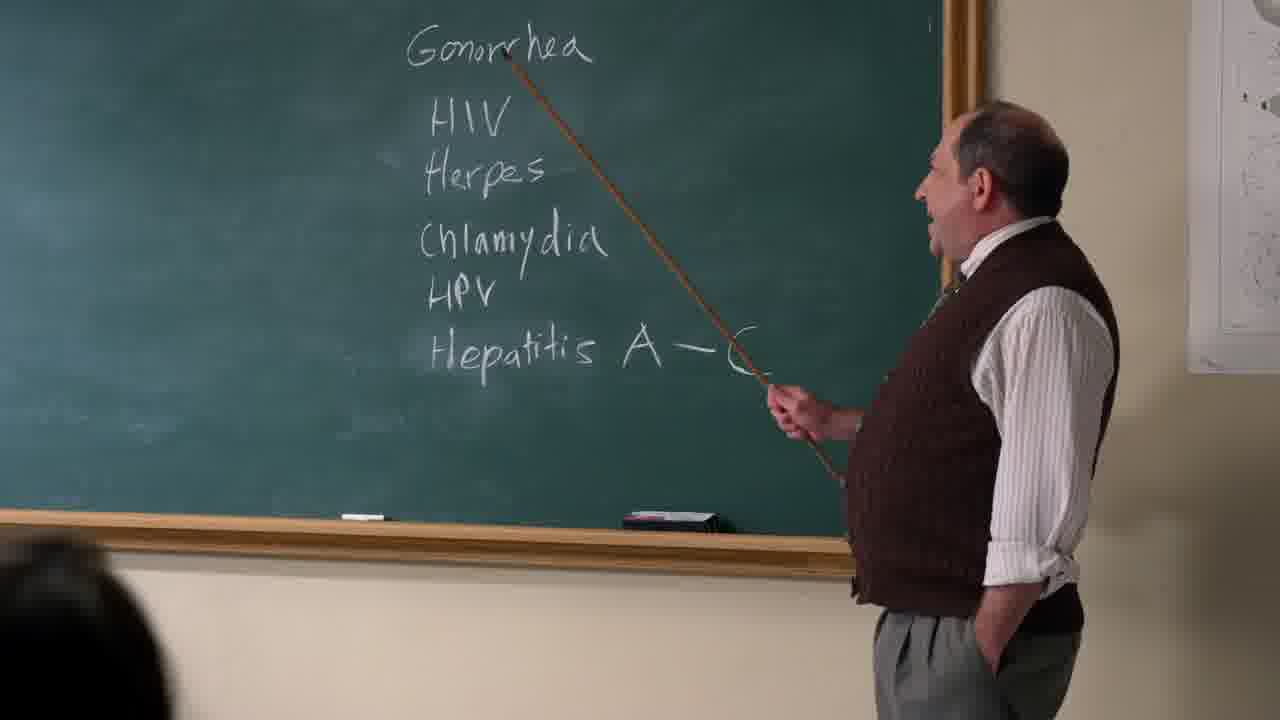 Gonorrhea
HIV
Herpes
Chlamydia
HPV
Hepatitis A - C